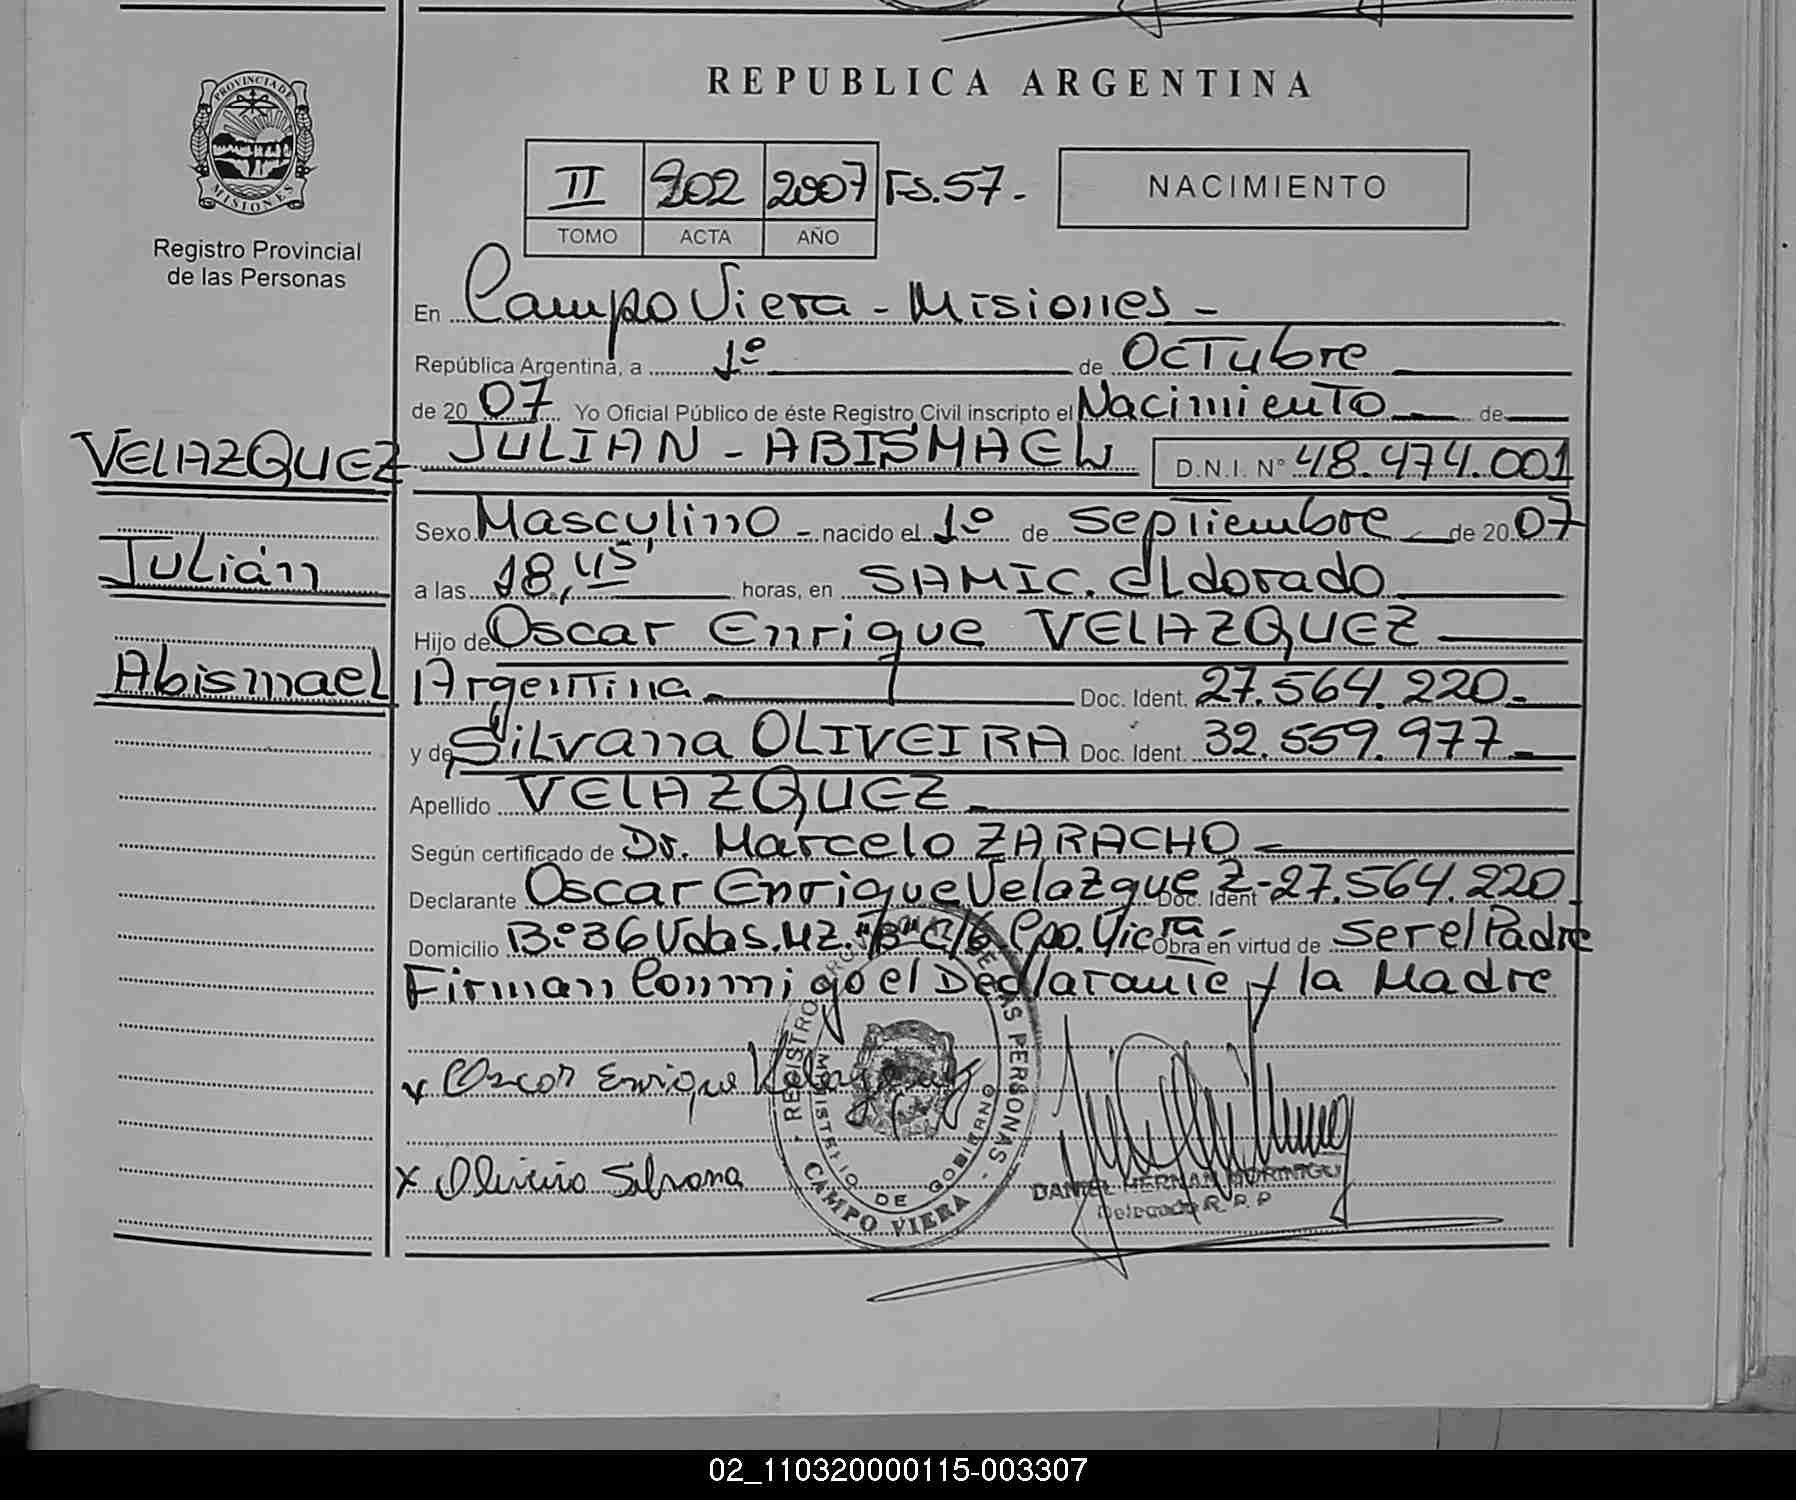 REPUBLICA ARGENTINA
PROVINCIA DE MISIONES
Registro Provincial
de las Personas
II 202 2007 Fs.57.-
TOMO ACTA AÑO
NACIMIENTO
En Campo Viera - Misiones -
República Argentina, a 1º de Octubre
de 2007 Yo Oficial Público de éste Registro Civil inscripto el Nacimiento de
VELAZQUEZ
Julián
Abismael
JULIAN - ABISMAEL D.N.I. Nº 48.474.001
Sexo Masculino - nacido el 1º de Septiembre de 2007
a las 18,45' horas, en SAMIC. Eldorado
Hijo de Oscar Enrique VELAZQUEZ
Argentina - Doc. Ident. 27.564.220-
y de Silvana OLIVEIRA Doc. Ident. 32.559.977-
Apellido VELAZQUEZ -
Según certificado de Dr. Marcelo ZARACHO -
Declarante Oscar Enrique Velazquez - Doc. Ident 27.564.220
Domicilio Bº 36 Vdas. MZ. "B" C/6 Cpo. Viera - Obra en virtud de Ser el Padre
Firman Conmigo el Declarante y la Madre
x Oscar Enrique Velazquez
x Oliveira Silvana
REGISTRO DE LAS PERSONAS - CAMPO VIERA -
MINISTERIO DE GOBIERNO
DANIEL HERNAN MORINIGO
Delegado R. P. P
02_110320000115-003307